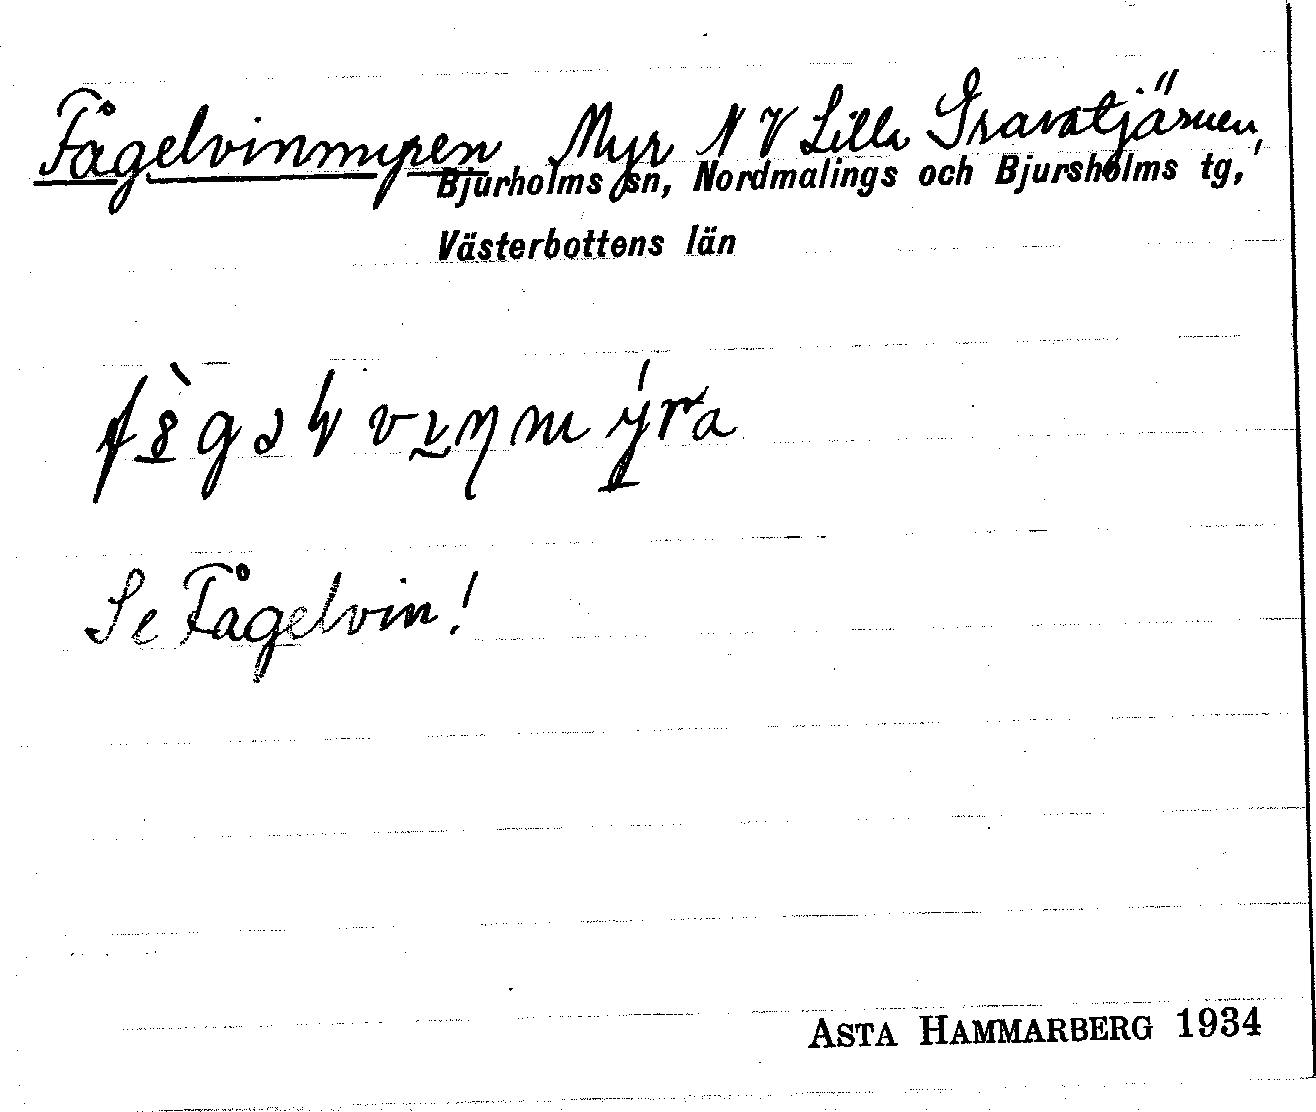 Fågelvinmyren Myr N V Lilla Gravatjärnen,
Bjurholms sn, Nordmalings och Bjursholms tg,
Västerbottens län
Se Fågelvin!
ASTA HAMMARBERG 1934